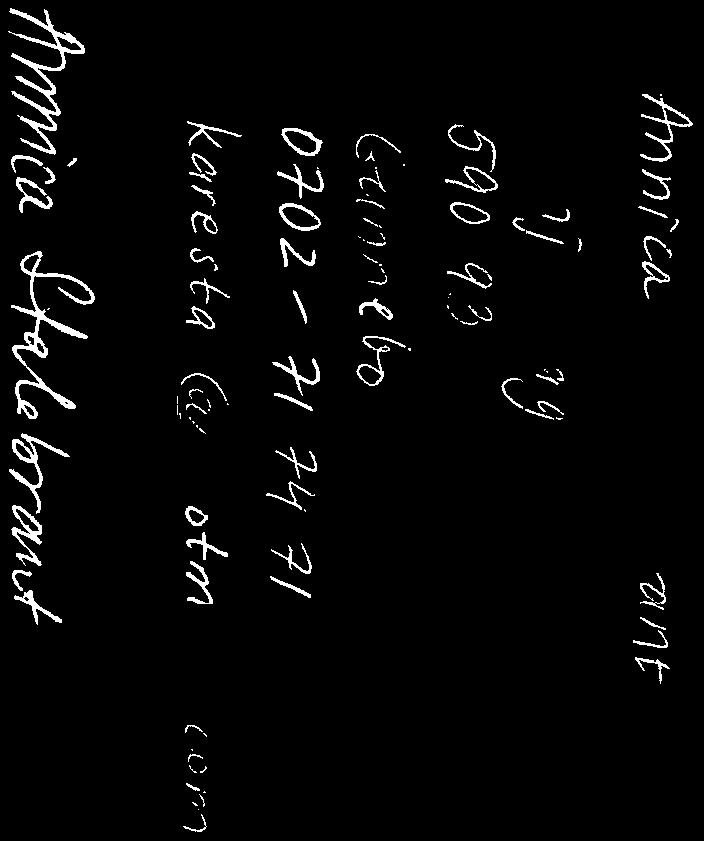 Annica ant
590 93
Gunnebo
0702-71 74 71
karesta @ otm com
Annica Stalebrant